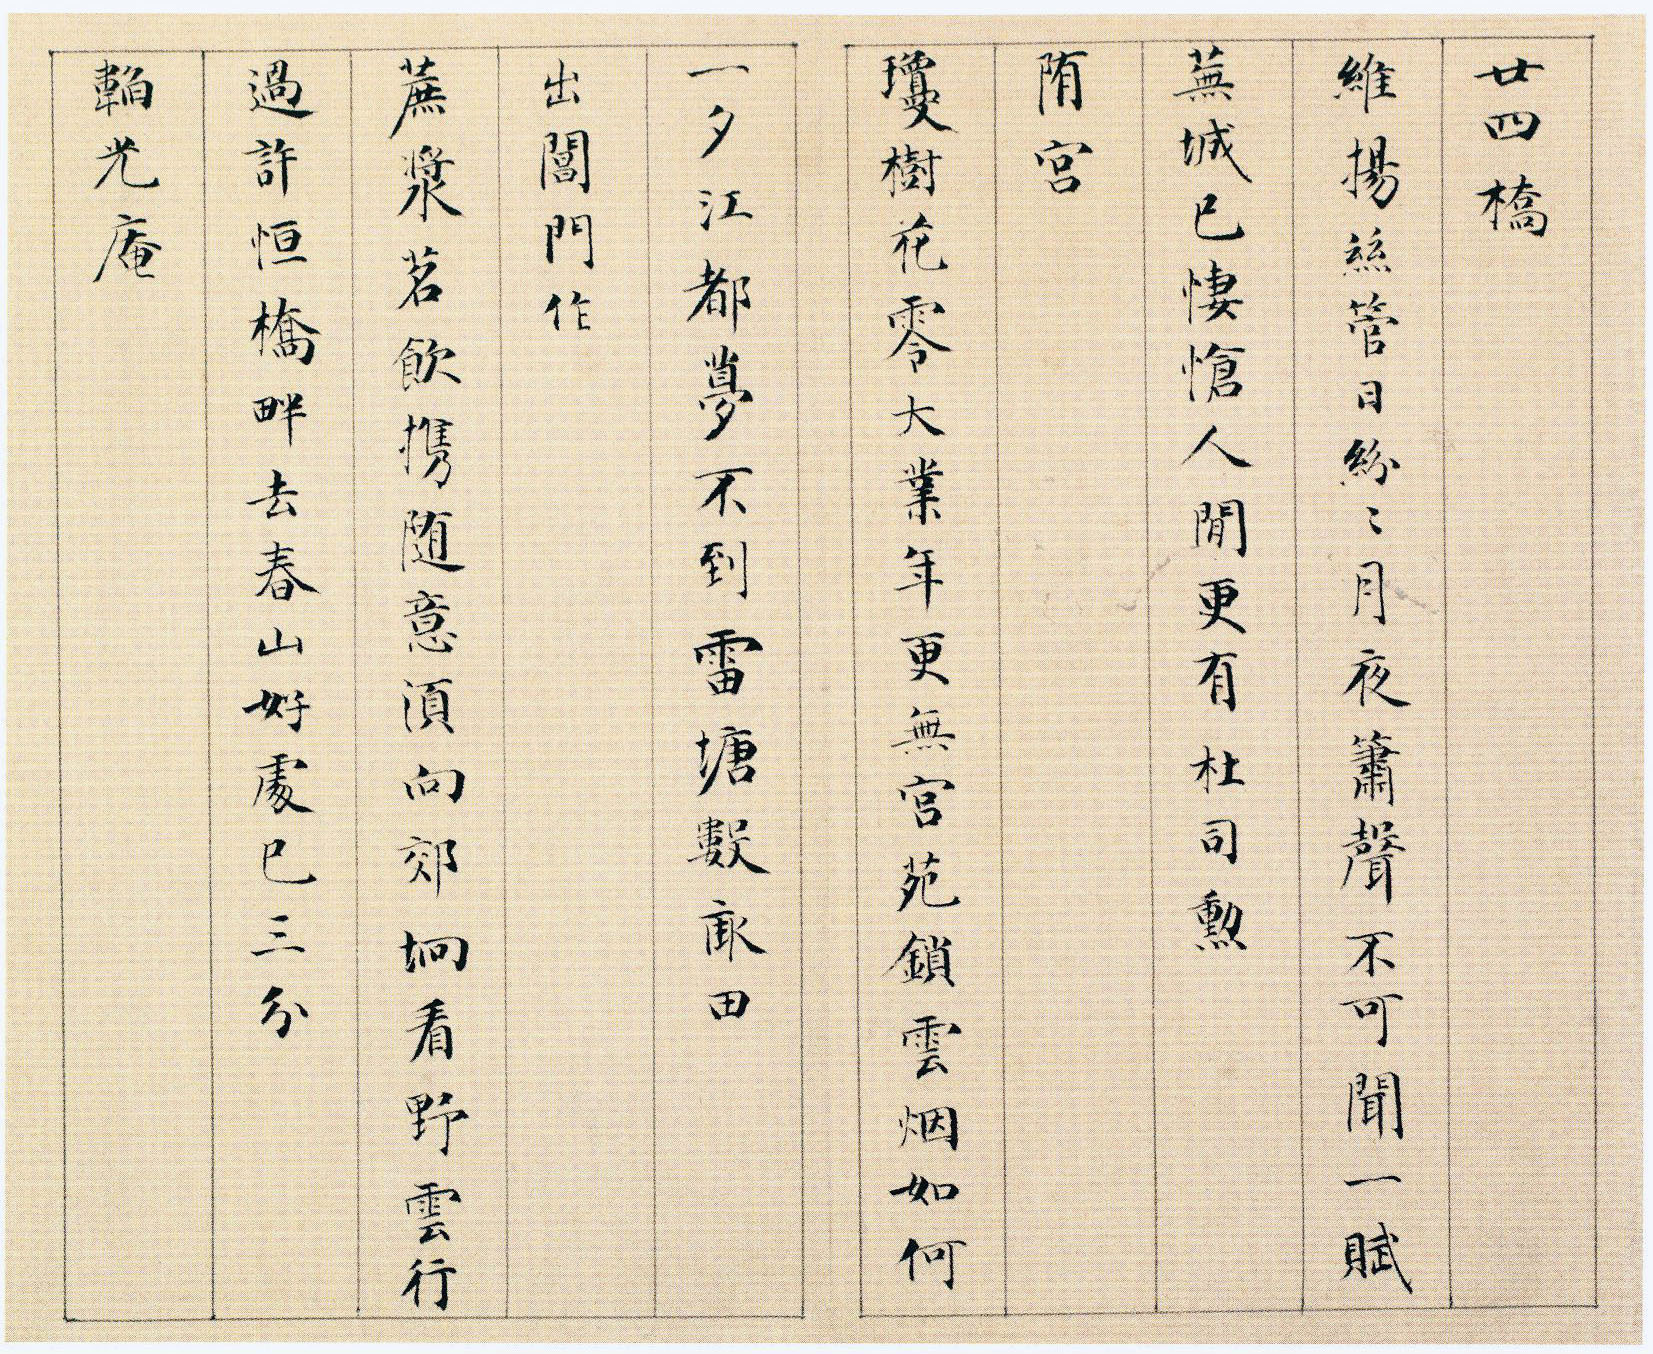 廿四橋
維揚絲管日紛〻月夜簫聲不可聞一賦
蕪城已悽愴人間更有杜司勲
隋宮
瓊樹花零大業年更無宮苑鎖雲烟如何
一夕江都夢不到雷塘數畝田
出閶門作
蔗漿茗飲携随意須向郊坰看野雲行
過許恒橋畔去春山好處已三分
韜光庵